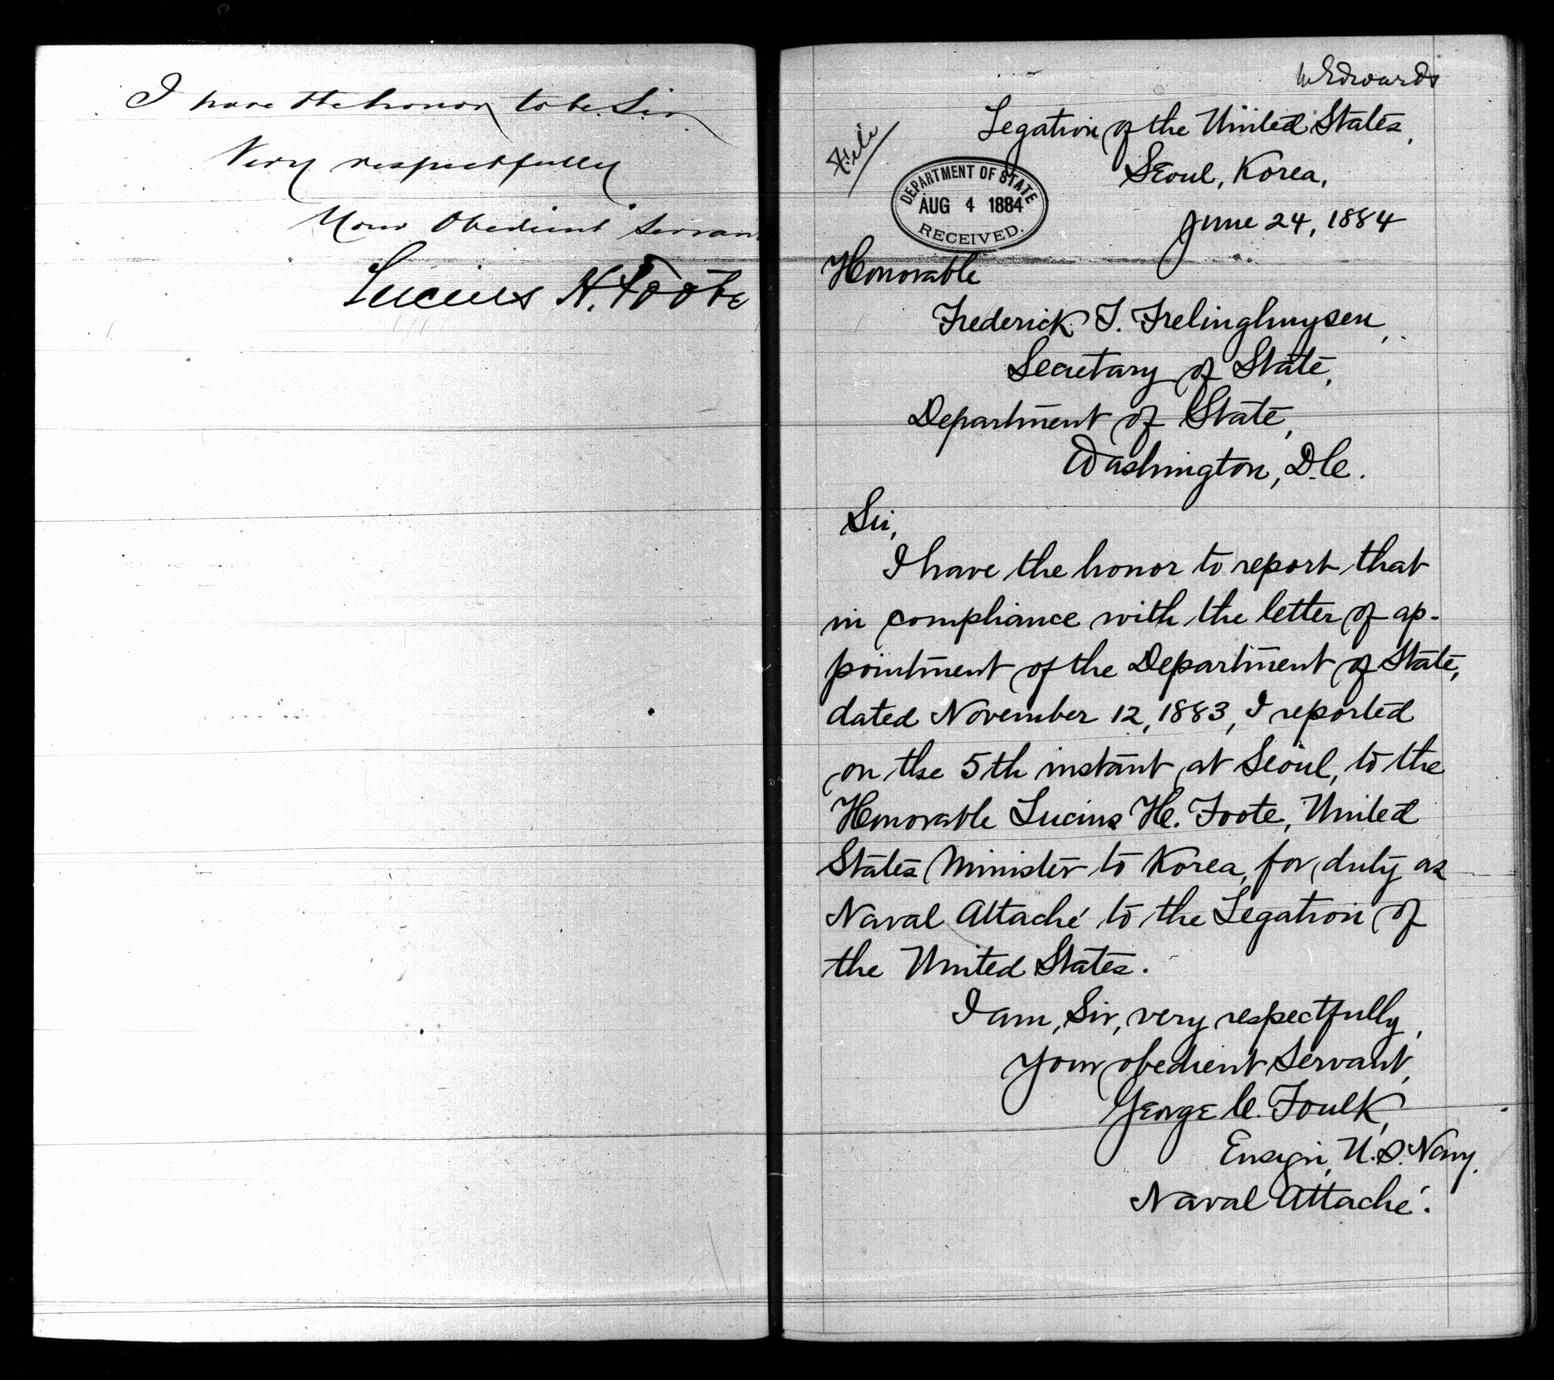 I have the honor to be Sir
Very respectfully
Your Obedient Servant
Lucius H. Foote
Mr Edwards
Legation of the United States,
Seoul, Korea,
File
DEPARTMENT OF STATE
AUG 4 1884
RECEIVED.
June 24, 1884
Honorable
Frederick T. Frelinghuysen,
Secretary of State,
Department of State,
Washington, D.C.
Sir,
I have the honor to report that
in compliance with the letter of ap-
pointment of the Department of State,
dated November 12, 1883, I reported
on the 5th instant at Seoul, to the
Honorable Lucius H. Foote, United
States Minister to Korea, for duty as
Naval Attaché to the Legation of
the United States.
I am, Sir, very respectfully,
your obedient Servant,
George C. Foulk,
Ensign, U.S. Navy.
Naval Attaché.